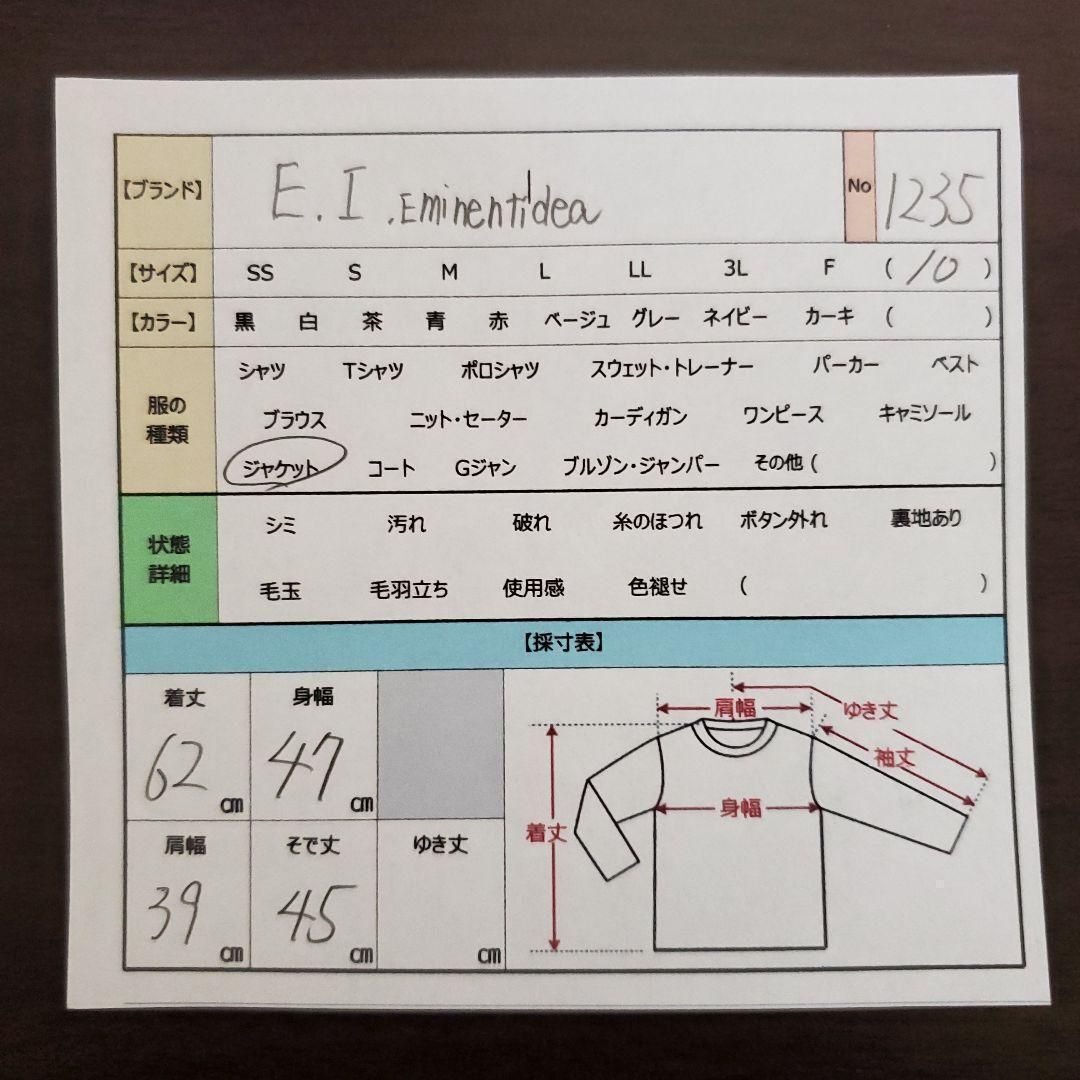 【ブランド】 E.I.Eminentidea No 1235
【サイズ】 SS S M L LL 3L F ( 10 )
【カラー】 黒 白 茶 青 赤 ベージュ グレー ネイビー カーキ ( )
服の種類
シャツ Tシャツ ポロシャツ スウェット・トレーナー パーカー ベスト
ブラウス ニット・セーター カーディガン ワンピース キャミソール
ジャケット コート Gジャン ブルゾン・ジャンパー その他 ( )
状態詳細
シミ 汚れ 破れ 糸のほつれ ボタン外れ 裏地あり
毛玉 毛羽立ち 使用感 色褪せ ( )
【採寸表】
着丈 身幅
62 cm 47 cm
肩幅 そで丈 ゆき丈
39 cm 45 cm cm
肩幅 ゆき丈
袖丈
身幅
着丈